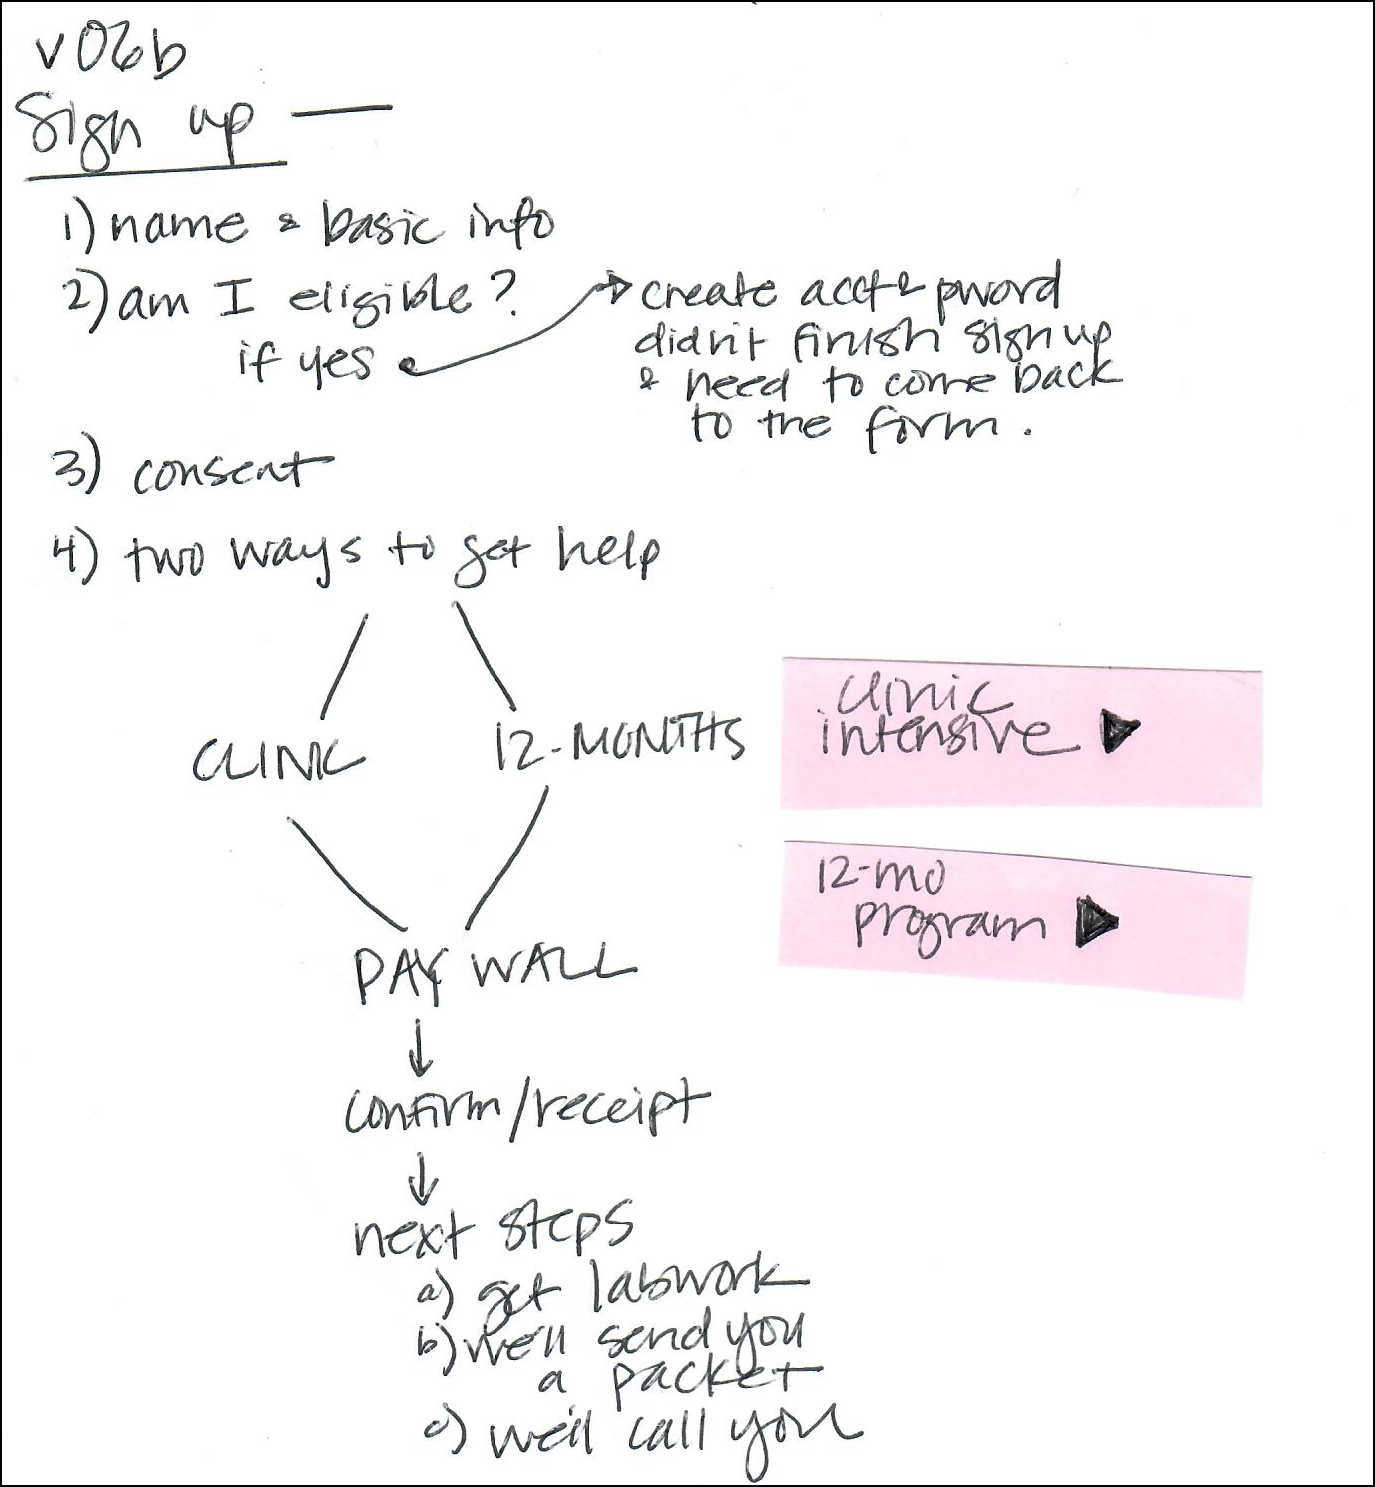 v06b
Sign up —
1) name & basic info
2) am I eligible?
if yes
create acct & pword
didn't finish sign up
& need to come back
to the form.
3) consent
4) two ways to get help
CLINIC
12-MONTHS
clinic
intensive
12-mo
program
PAY WALL
confirm/receipt
next steps
a) get labwork
b) we'll send you
a packet
c) we'll call you